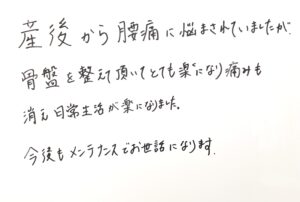 産後から腰痛に悩まされていましたが、
骨盤を整えて頂いてとても楽になり痛みも
消え日常生活が楽になりました。
今後もメンテナンスでお世話になります。